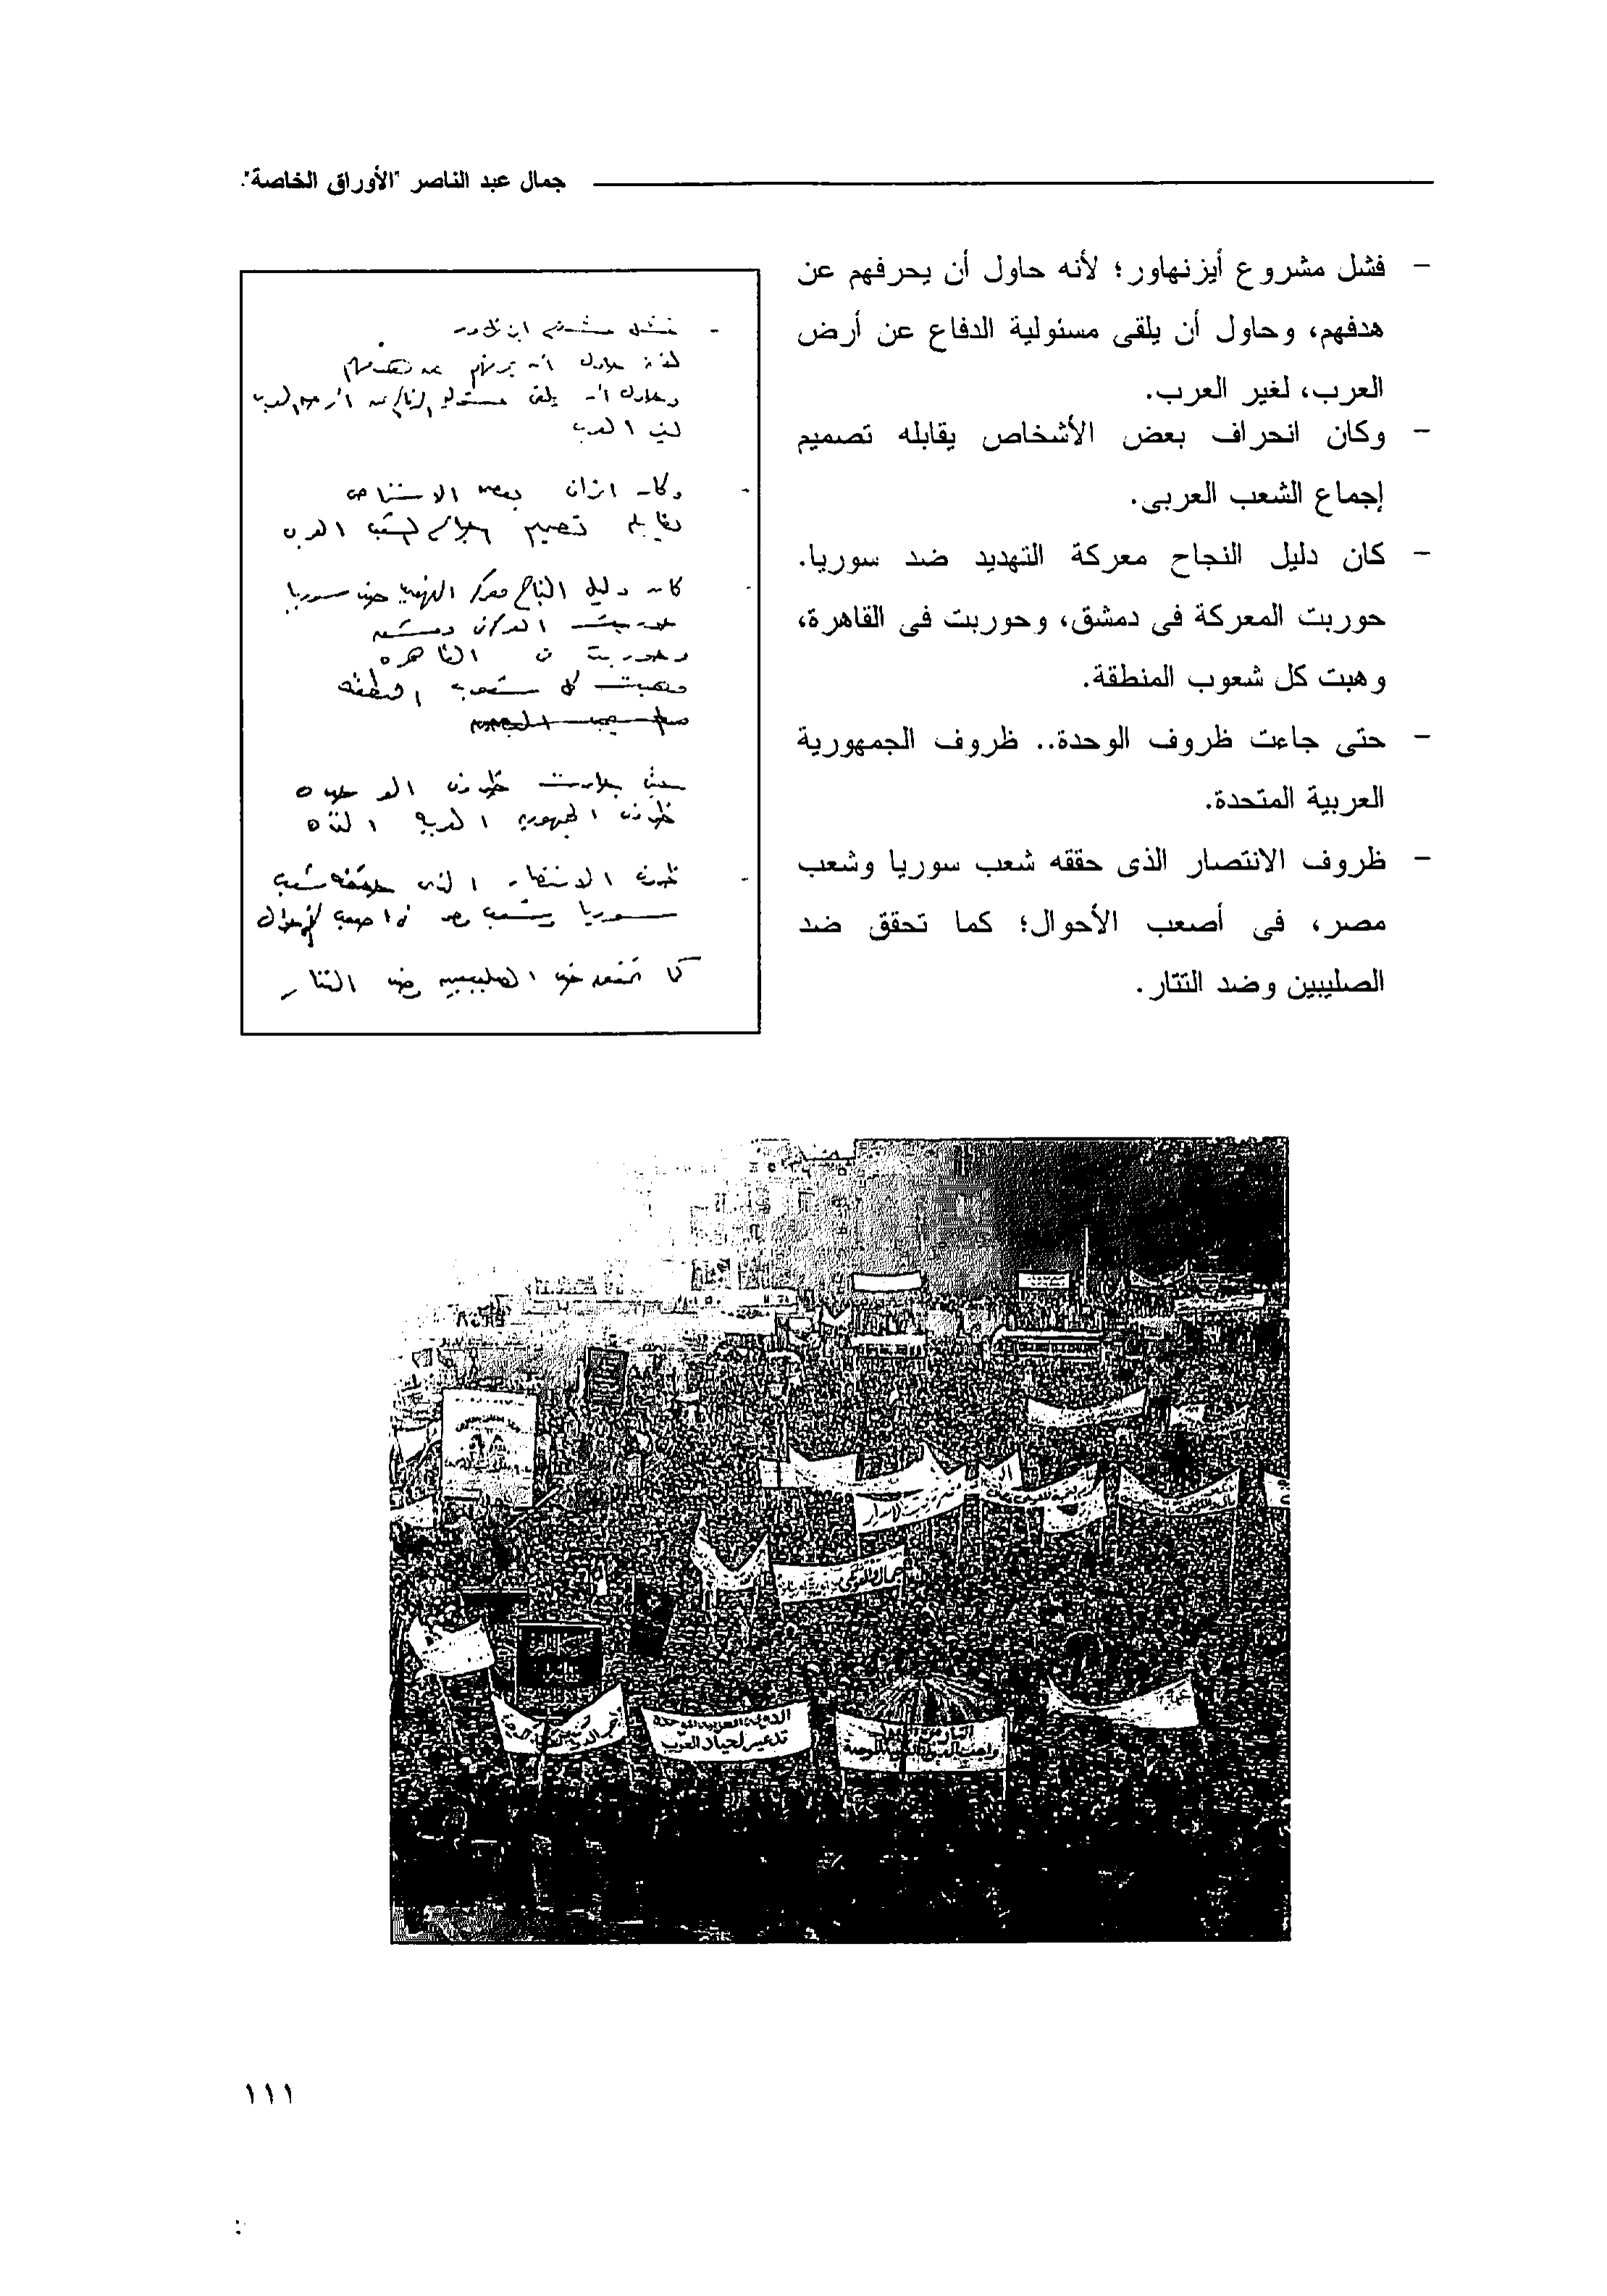 جمال عبد الناصر "الأوراق الخاصة".
– فشل مشروع أيزنهاور؛ لأنه حاول أن يحرفهم عن
هدفهم، وحاول أن يلقى مسئولية الدفاع عن أرض
العرب، لغير العرب.
– وكان انحراف بعض الأشخاص يقابله تصميم
إجماع الشعب العربى.
– كان دليل النجاح معركة التهديد ضد سوريا.
حوربت المعركة فى دمشق، وحوربت فى القاهرة،
وهبت كل شعوب المنطقة.
– حتى جاءت ظروف الوحدة.. ظروف الجمهورية
العربية المتحدة.
– ظروف الانتصار الذى حققه شعب سوريا وشعب
مصر، فى أصعب الأحوال؛ كما تحقق ضد
الصليبين وضد التتار.
- فشل مشروع ايزنهاور
لأنه حاول ان يحرفهم عن هدفهم
وحاول ان يلقى مسئولية الدفاع عن ارض العرب
لغير العرب
- وكان انحراف بعض الاشخاص
يقابله تصميم اجماع الشعب العربى
- كان دليل النجاح معركة التهديد ضد سوريا
حوربت المعركة فى دمشق
وحوربت فى القاهره
وهبت كل شعوب المنطقه
حتى جاءت ظروف الوحده
ظروف الجمهورية العربية المتحده
- ظروف الانتصار الذى حققه شعب
سوريا وشعب مصر فى اصعب الاحوال
كما تحقق ضد الصليبيين وضد التتار
الدولة العربية الموحدة
تدعيم لحياد العرب
١١١